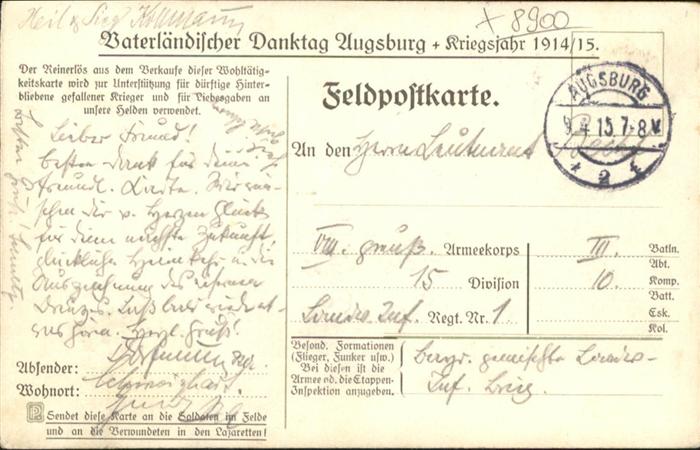 + 8900
Vaterländischer Danktag Augsburg + Kriegsjahr 1914/15.
Der Reinerlös aus dem Verkaufe dieser Wohltätig-
keitskarte wird zur Unterstützung für dürftige Hinter-
bliebene gefallener Krieger und für Liebesgaben an
unsere Helden verwendet.
Lieber Freund!
besten Dank für deine
freundl. Karte. Wir wün-
schen dir v. Herzen Glück
für deine Zukunft
glückliche Heimkehr u. die
Auszeichnung des eisernen
Kreuzes. Laß bald wieder et-
was hören. Herzl. Gruß!
Absender:
Wohnort:
Sendet diese Karte an die Soldaten im Felde
und an die Verwundeten in den Lazaretten!
Feldpostkarte.
AUGSBURG
9. 4 15. 7-8 V.
* 2 *
An den Herrn Leutnant
VIII. preuß. Armeekorps
15 Division
Landw. Inf. Regt. Nr. 1
III. Batln.
Abt.
10. Komp.
Batt.
Esk.
Kol.
Besond. Formationen
(Flieger, Funker usw.)
Bei diesen ist die
Armee od. die Etappen-
Inspektion anzugeben.
bayr. gemischte Landw-
Inf. Brig.